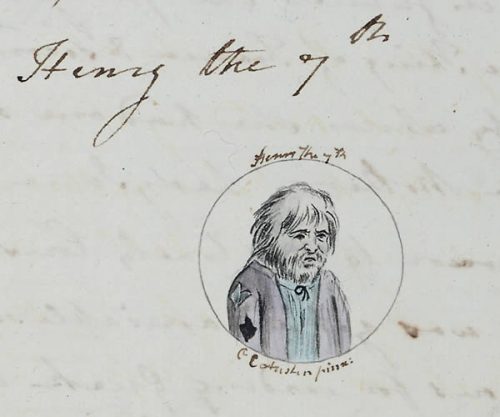 Henry the 7th
Henry the 7th
C E Austen pinx: